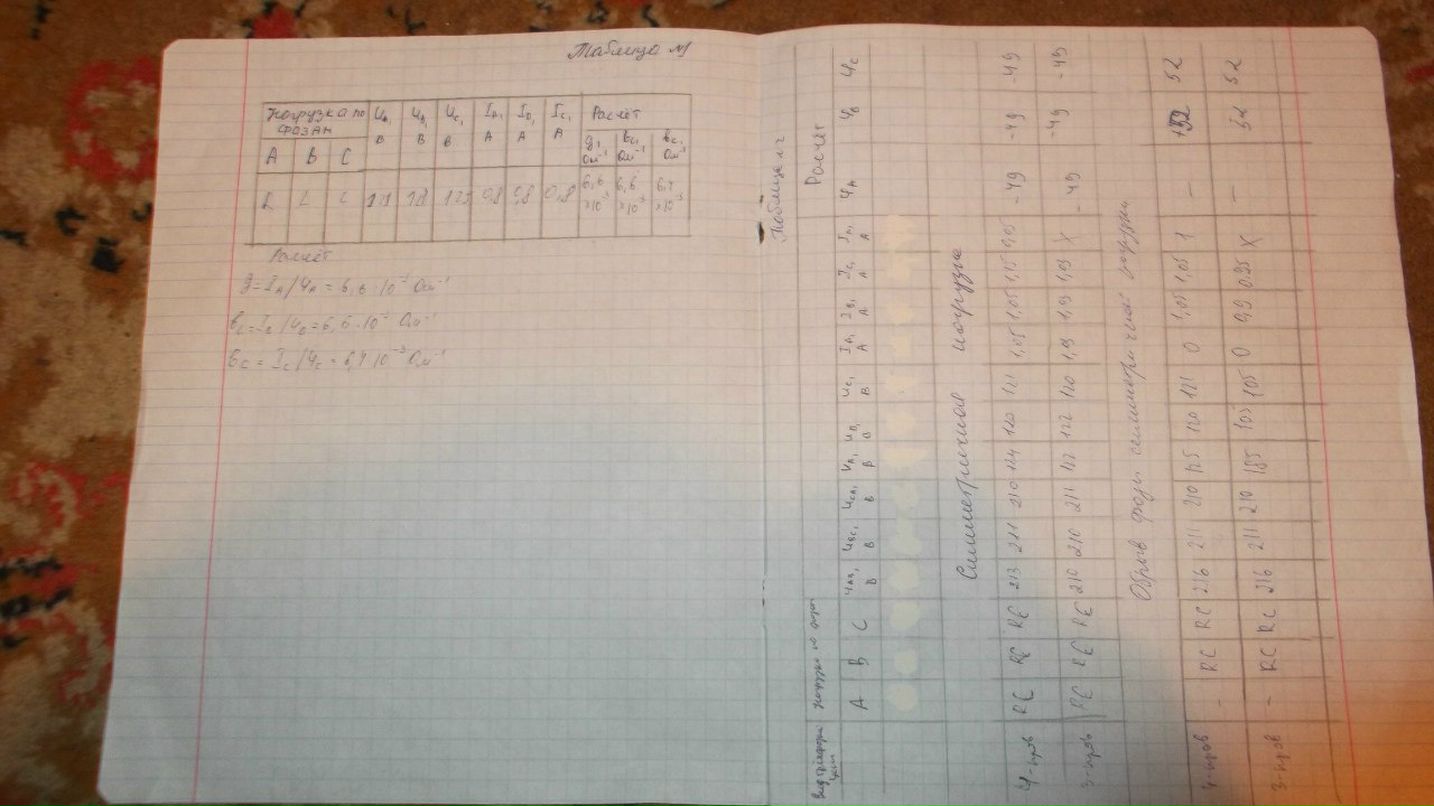 Таблица №1
Нагрузка по фазам UA, В UB, В UC, В IA, А IB, А IC, А Расчёт
А В С g, Ом⁻¹ bL, Ом⁻¹ bC, Ом⁻¹
L C 0,8 0,8 0,8 6,6 ×10⁻³ 6,6 ×10⁻³ 6,4 ×10⁻³
Расчёт
g = IA/UA = 6,6 · 10⁻³ Ом⁻¹
/UB = 6,6 · 10⁻³ Ом⁻¹
bC = IC/UC = 6,4 · 10⁻³ Ом⁻¹
Таблица
Нагрузка по Расчёт
А В С UAB, В UBC, В UCA, В UA, В UB, В UC, В IA, А IB, А IC, А А φA φB φC
Симметричная нагрузка
4-пров RC RC RC 213 211 210 124 120 121 1,05 1,05 1,15 0,05 -49 -49 -49
3-пров RC RC RC 210 210 211 122 122 120 1,03 X -49 -49 -49
Обрыв фазы нагрузки
4-пров - RC RC 216 211 210 125 120 121 0 1,05 1,05 1 — 52
3-пров - RC RC 216 211 210 185 105 105 0 0,9 0,95 X — 52